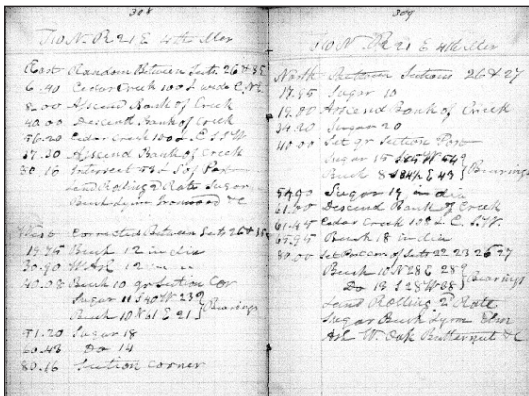 308
T 10 N. R 21 E 4th Mer
East Random Between Sects 26 & 35
6.40 Cedar Creek 100 L wide C. N. E.
8.00 Ascend Bank of Creek
40.00 Descend Bank of Creek
56.20 Cedar Creek 100 L C. S. W
57.30 Ascend Bank of Creek
80.16 Intersect 53 L S of Post
Land Roling 2 Rate Sugar
Buch Lynn Ironwood &C
West Corrected Between Sects 26 & 35
19.75 Buch 12 in dia
30.90 W Ash 12 in
40.08 Buch 10 qr Section Cor
Sugar 11 S40W 23
Buch 10 N61E 21
Bearings
71.20 Sugar 18
60.43 Do 14
80.16 Section Corner
309
T 10 N. R 21 E 4th Mer
North Between Sections 26 & 27
17.85 Sugar 10
19.80 Ascend Bank of Creek
34.20 Sugar 20
40.00 Set qr Section Post
Sugar 15
Buch 8
Bearings
54.90 Sugar 19 in dia
61.00 Descend Bank of Creek
61.45 Cedar Creek 100 L C. S. W.
67.95 Buch 18 in dia
80.00 Set Post Cor of Sects 22 23 26 27
Buch 10 N28E 28
Do 13 S28W 38
Bearings
Land Rolling 2 Rate
Sugar Buch Lynn Elm
Ash W. Oak Butternut &C